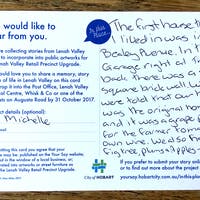 would like to
ar from you.
re collecting stories from Lenah Valley
orporate into public artworks for
Lenah Valley Retail Precinct Upgrade.
would love you to share a memory, story
of life in Lenah Valley on this card
drop it into the Post Office, Lenah Valley
Centre, Whisk & Co or one of the
on Augusta Road by 31 October 2017.
act details (optional):
Michelle
itting this card you agree that your
may be published on the Your Say website,
in the window of a local business, or
into artworks or street furniture as
the Lenah Valley Retail Precinct Upgrade.
City of HOBART
In this Place
The first house t
I lived in was in
Bealey Avenue. In t
Garage right at t
back. There was a
square brick buil
were told that
was the original ho
and it was a grape
for the farmer to m
own wine. We had
fig tree, plums & apples
If you prefer to submit your story onlin
or to find out more about the project
yoursay.hobartcity.com.au/inthisplac